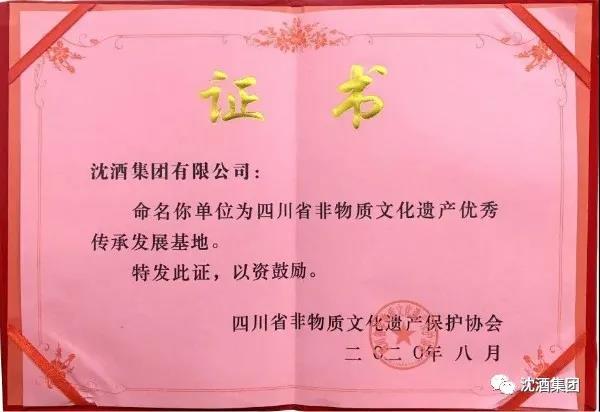 证 书
沈酒集团有限公司：
命名你单位为四川省非物质文化遗产优秀
传承发展基地。
特发此证，以资鼓励。
四川省非物质文化遗产保护协会
二〇二〇年八月
沈酒集团